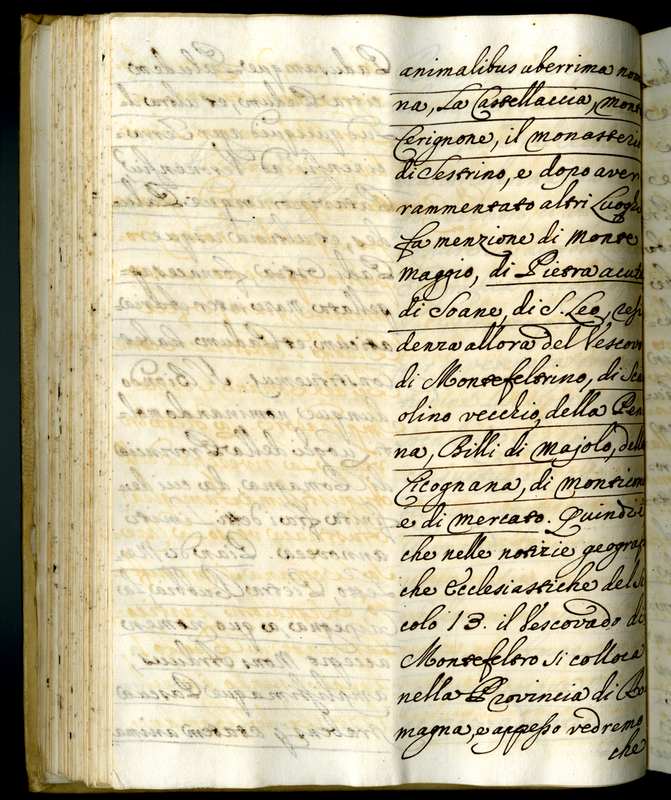 animalibus uberrima nom
na, La Castellaccia, mont
Cerignone, il monasteri
di Sestrino, e dopo aver
rammentato altri Luoghi
fa menzione di Monte
maggio, di Pietra acuta
di Soane, di S. Leo, resi
denza allora del Vescov
di Montefeltrino, di Sca
olino vecchio, della Pen
na, Billi di Majolo, dell
Cicognana, di monticon
e di mercato. Quindi è
che nelle notizie geograf
che Ecclesiastiche del Se
colo 13. il Vescovado di
Montefeltro si colloca
nella Provincia di Ro
magna, e appresso vedremo
che